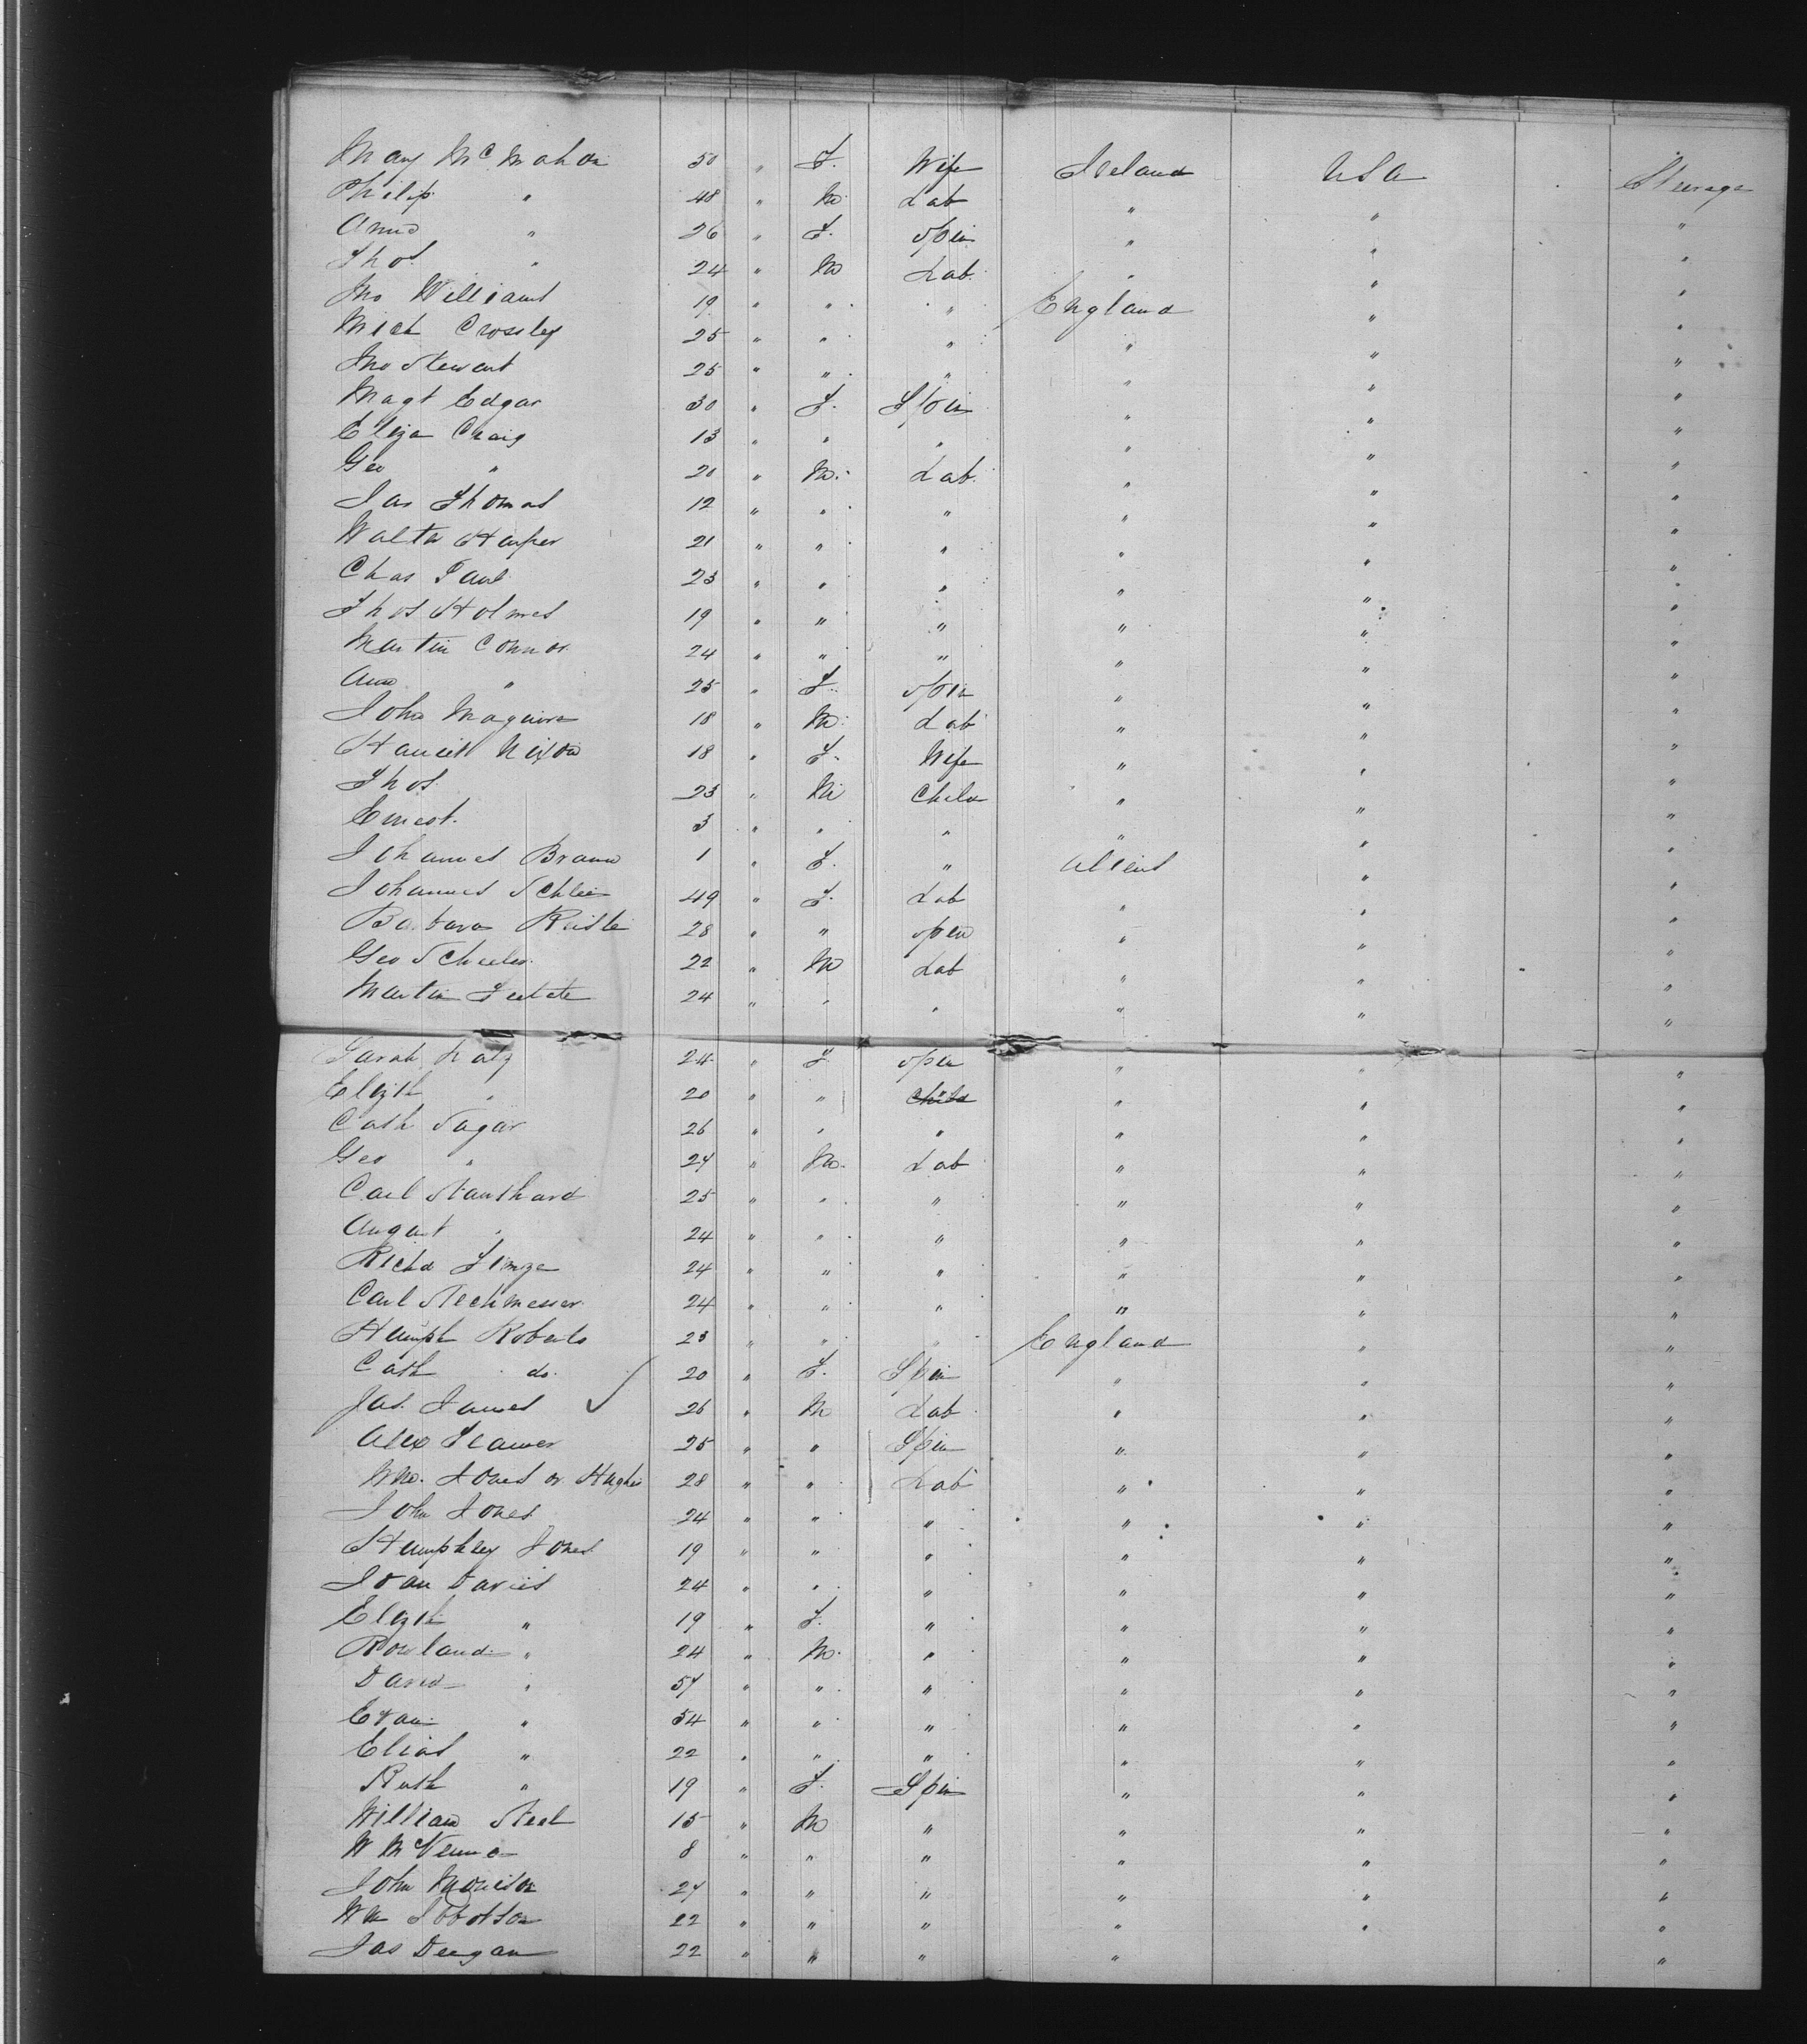 Mary McMahon 50 " F. Wife Ireland USA Steerage
Philip " 48 " M. Lab " " "
Anne " 26 " F. Spin " " "
Thos. " 24 " M Lab. " " "
Jno Williams 19 " " " England " "
Mich Crossley 25 " " " " " "
Jno Stewart 25 " " " " " "
Magt Edgar 30 " F. Spin " " "
Eliza Craig 13 " " " " " "
Geo " 20 " M. Lab. " " "
Jas Thomas 12 " " " " " "
Walter Harper 21 " " " " " "
Chas Paul 23 " " " " " "
Thos Holmes 19 " " " " " "
Martin Connor 24 " " " " " "
Ann " 25 " F. Spin " " "
John Maguire 18 " M. Lab " " "
Harriett Nixon 18 " F. Wife " " "
Thos. 23 " M Child " " "
Ernest. 3 " " " " " "
Johannes Braun 1 " F. " Aliens " "
Johannes 49 " F. Lab " " "
Barbara 28 " " Spin " " "
Geo 22 " M Lab " " "
Martin 24 " " " " " "
Sarah Katz 24 " F. Spin " " "
Elizth " 20 " " Child " " "
Cath Sagar 26 " " " " " "
Geo " 24 " M. Lab " " "
Carl 25 " " " " " "
August " 24 " " " " " "
Richd 24 " " " " " "
Carl Stechmesser 24 " " " " " "
Humph Roberts 23 " " " England " "
Cath do. 20 " F. Spin " " "
Jas. James ✓ 26 " M Lab " " "
Alex 25 " " Spin " " "
Wm. Jones or Hughes 28 " " Lab " " "
John Jones 24 " " " " " "
Humphley Jones 19 " " " " " "
Evan Davies 24 " " " " " "
Elizth " 19 " F. " " " "
Rowland " 24 " M. " " " "
David " 57 " " " " " "
Evan " 54 " " " " " "
Elias " 22 " " " " " "
Ruth " 19 " F. Spin " " "
William Steel 15 " M " " " "
W 8 " " " " " "
John Morrison 27 " " " " " "
Wm Ibbotson 22 " " " " " "
Jas Deegan 22 " " " " " "